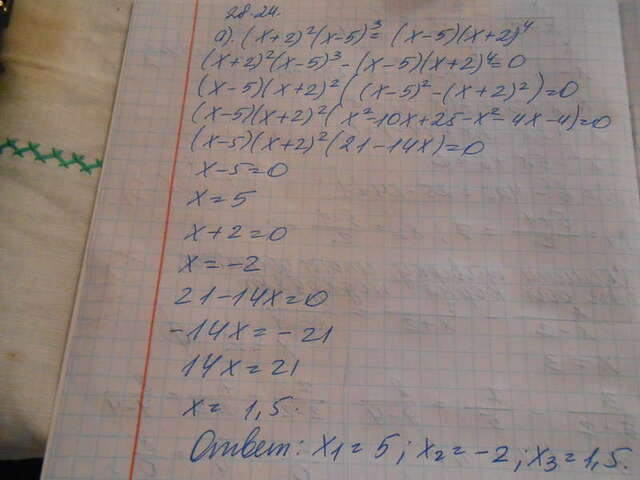 28.24.
а). (x+2)²(x-5)³ = (x-5)(x+2)⁴
(x+2)²(x-5)³ - (x-5)(x+2)⁴ = 0
(x-5)(x+2)²((x-5)² - (x+2)²) = 0
(x-5)(x+2)²(x²-10x+25-x²-4x-4) = 0
(x-5)(x+2)²(21-14x) = 0
x-5 = 0
x = 5
x+2 = 0
x = -2
21-14x = 0
-14x = -21
14x = 21
x = 1,5.
Ответ: x₁ = 5; x₂ = -2; x₃ = 1,5.